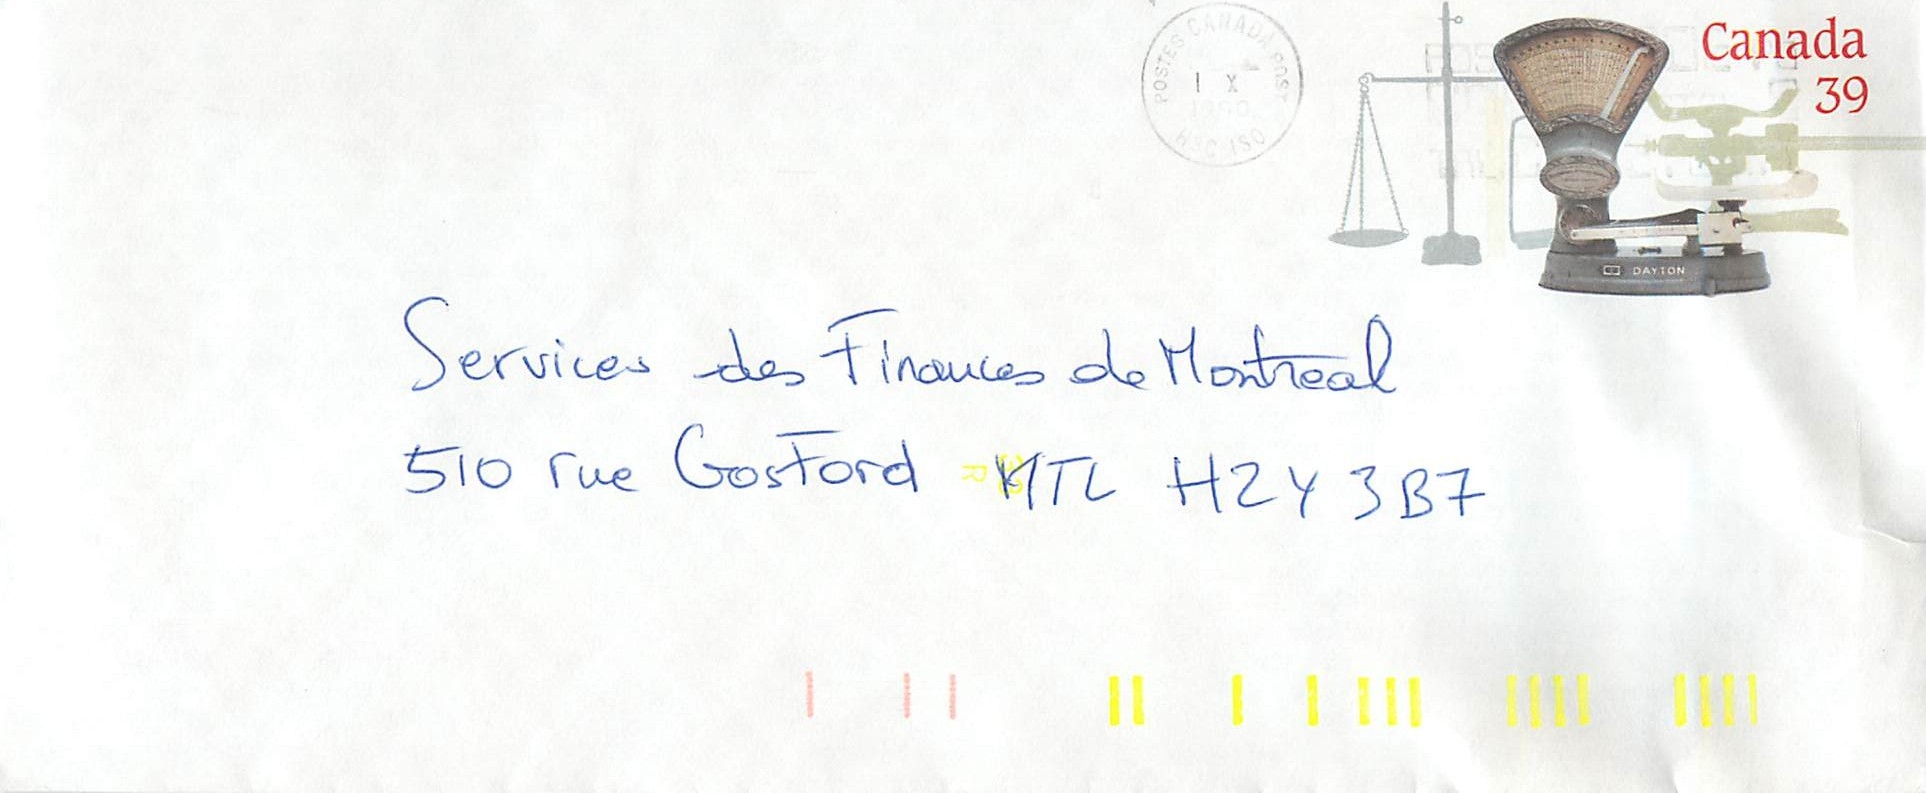 POSTES CANADA POST
1 X
1990
H3C 1S0
Canada
39
DAYTON
Services des Finances de Montreal
510 rue Gosford MTL H2Y 3B7